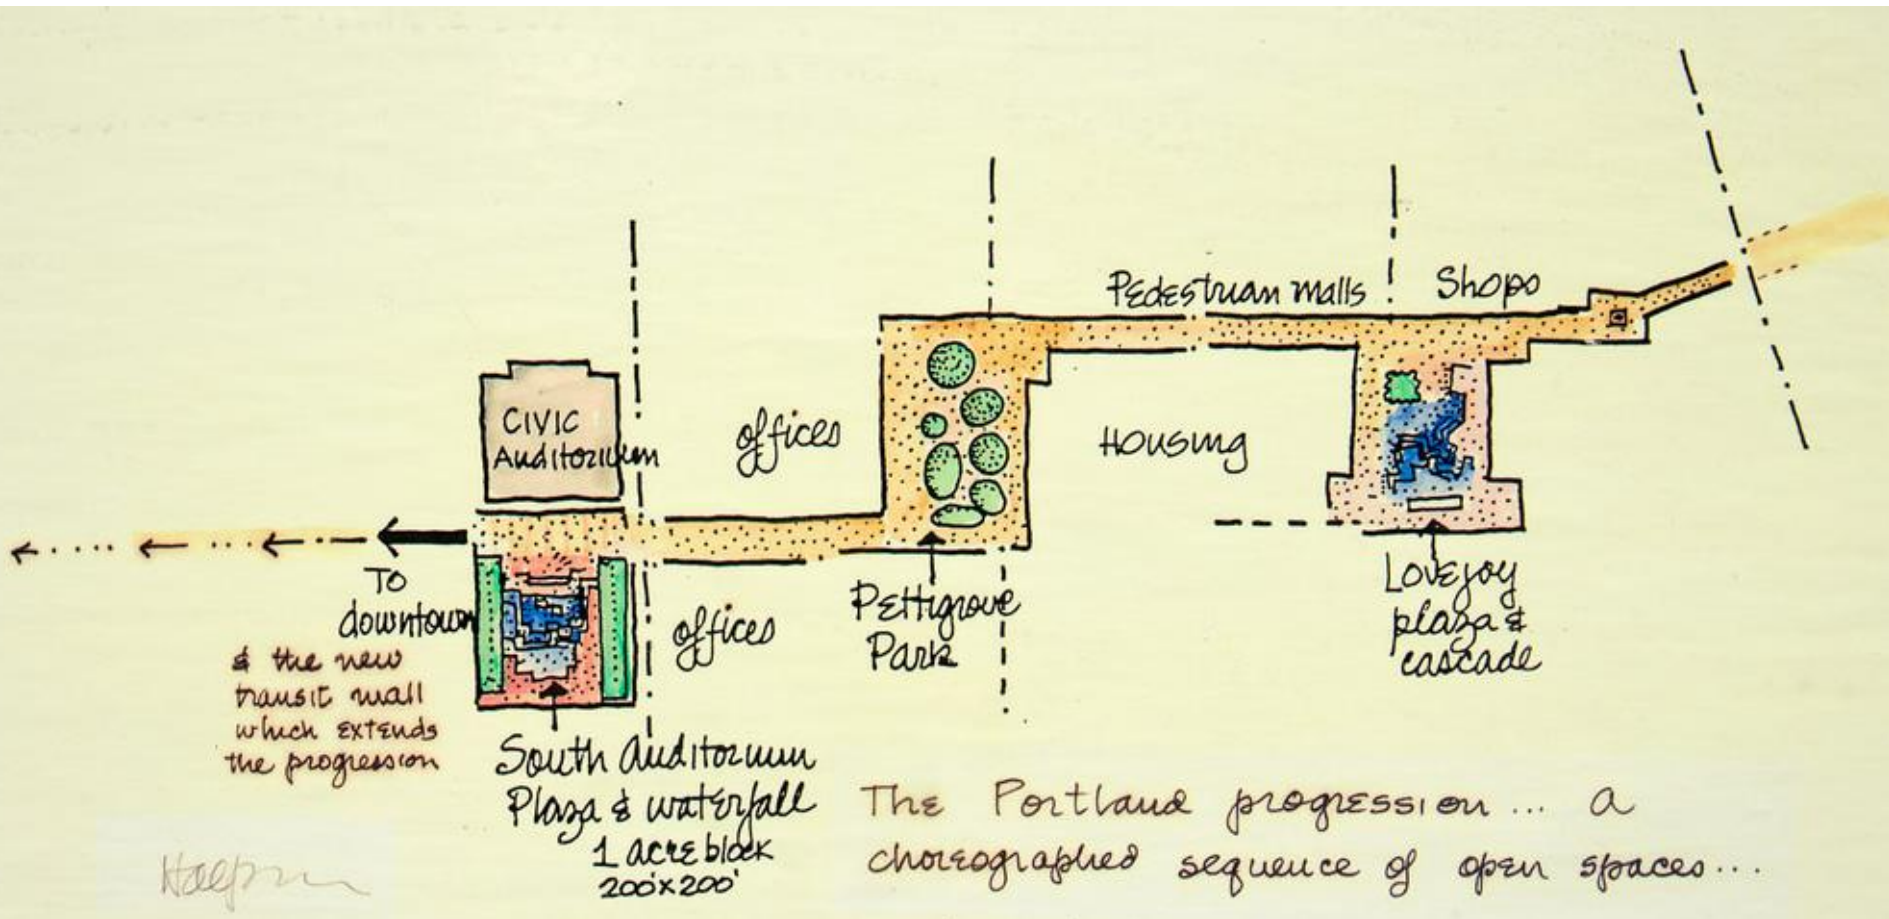 Pedestrian malls
Shops
CIVIC
Auditorium
offices
HOUSING
TO
downtown
& the new
transit mall
which extends
the progression
offices
Pettigrove
Park
Lovejoy
plaza &
cascade
South Auditorium
Plaza & waterfall
1 acre block
200'x200'
The Portland progression... a
choreographed sequence of open spaces...
Halprin